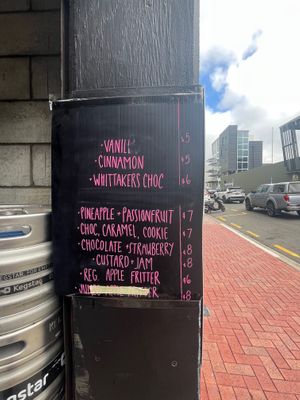 ·VANILL $5
·CINNAMON $5
·WHITTAKERS CHOC $6
·PINEAPPLE + PASSIONFRUIT $7
·CHOC, CARAMEL, COOKIE $7
·CHOCOLATE + STRAWBERRY $8
·CUSTARD + JAM $8
·REG. APPLE FRITTER $6
$8
KEGSTAR FOR
Kegstar
gstar